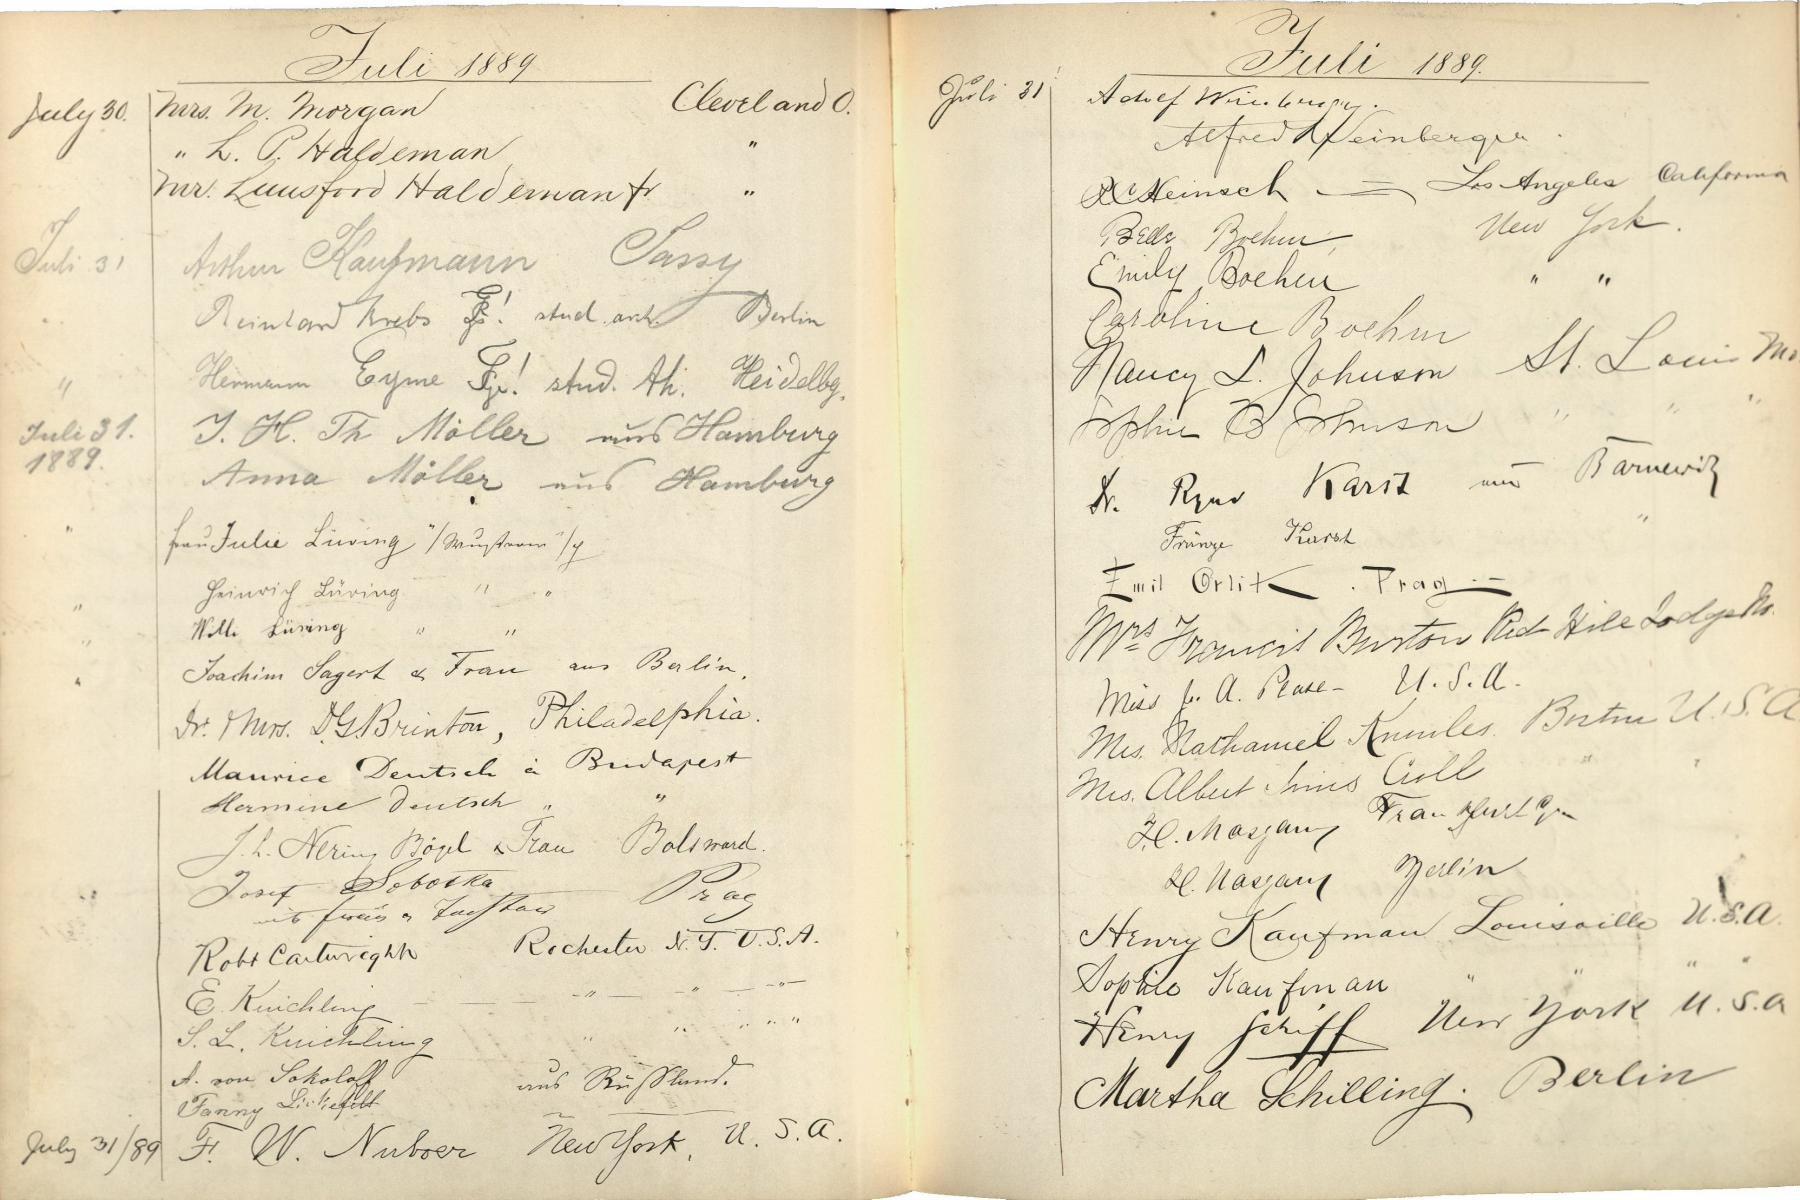 Juli 1889
July 30. Mrs. M. Morgan Cleveland O.
" L. P. Haldeman "
Mr. Lunsford Haldeman jr "
Juli 31 Arthur Kaufmann
Reinhard Krebs stud. arch. Berlin
" Hermann Eyme stud. Heidelbg.
Juli 31. 1889. J. H. Th Möller aus Hamburg
Anna Möller aus Hamburg
" Frau Julie Lüring
Heinrich Lüring " "
" Willi Lüring " "
" Joachim Sagert & Frau aus Berlin.
Dr. & Mrs. D. G. Brinton, Philadelphia.
Maurice Deutsch à Budapest
Hermine Deutsch " "
J. L. Nering Bögel & Frau Bolsward.
Josef Sobotka Prag
Robt Cartwright Rochester N.Y. U.S.A.
E. Kuichling " " "
S. L. Kuichling " " " "
A. von Sokoloff aus Russland.
Fanny
July 31/89 F. W. Nuboer New York, U.S.A.
Juli 1889.
Juli 31 Adolf Weinberger.
Alfred Weinberger.
Heinsch Los Angeles California
Boehm New York.
Emily Boehm " "
Caroline Boehm
Nancy L. Johnson St. Louis Mo.
Sophie B Johnson " " "
Dr. Karst aus Barnewitz
Fränze Karst "
Emil Orlik. Prag
Mrs Francis Burton Red Hill Lodge
Miss A. Pease - U.S.A.
Mrs. Nathaniel Knowles. Boston U.S.A
Mrs. Albert Croll " "
H. Frankfurt
H. Berlin
Henry Kaufman Louisville U.S.A.
Sophie Kaufman " " " "
Henry Schiff New York U.S.A
Martha Schilling. Berlin